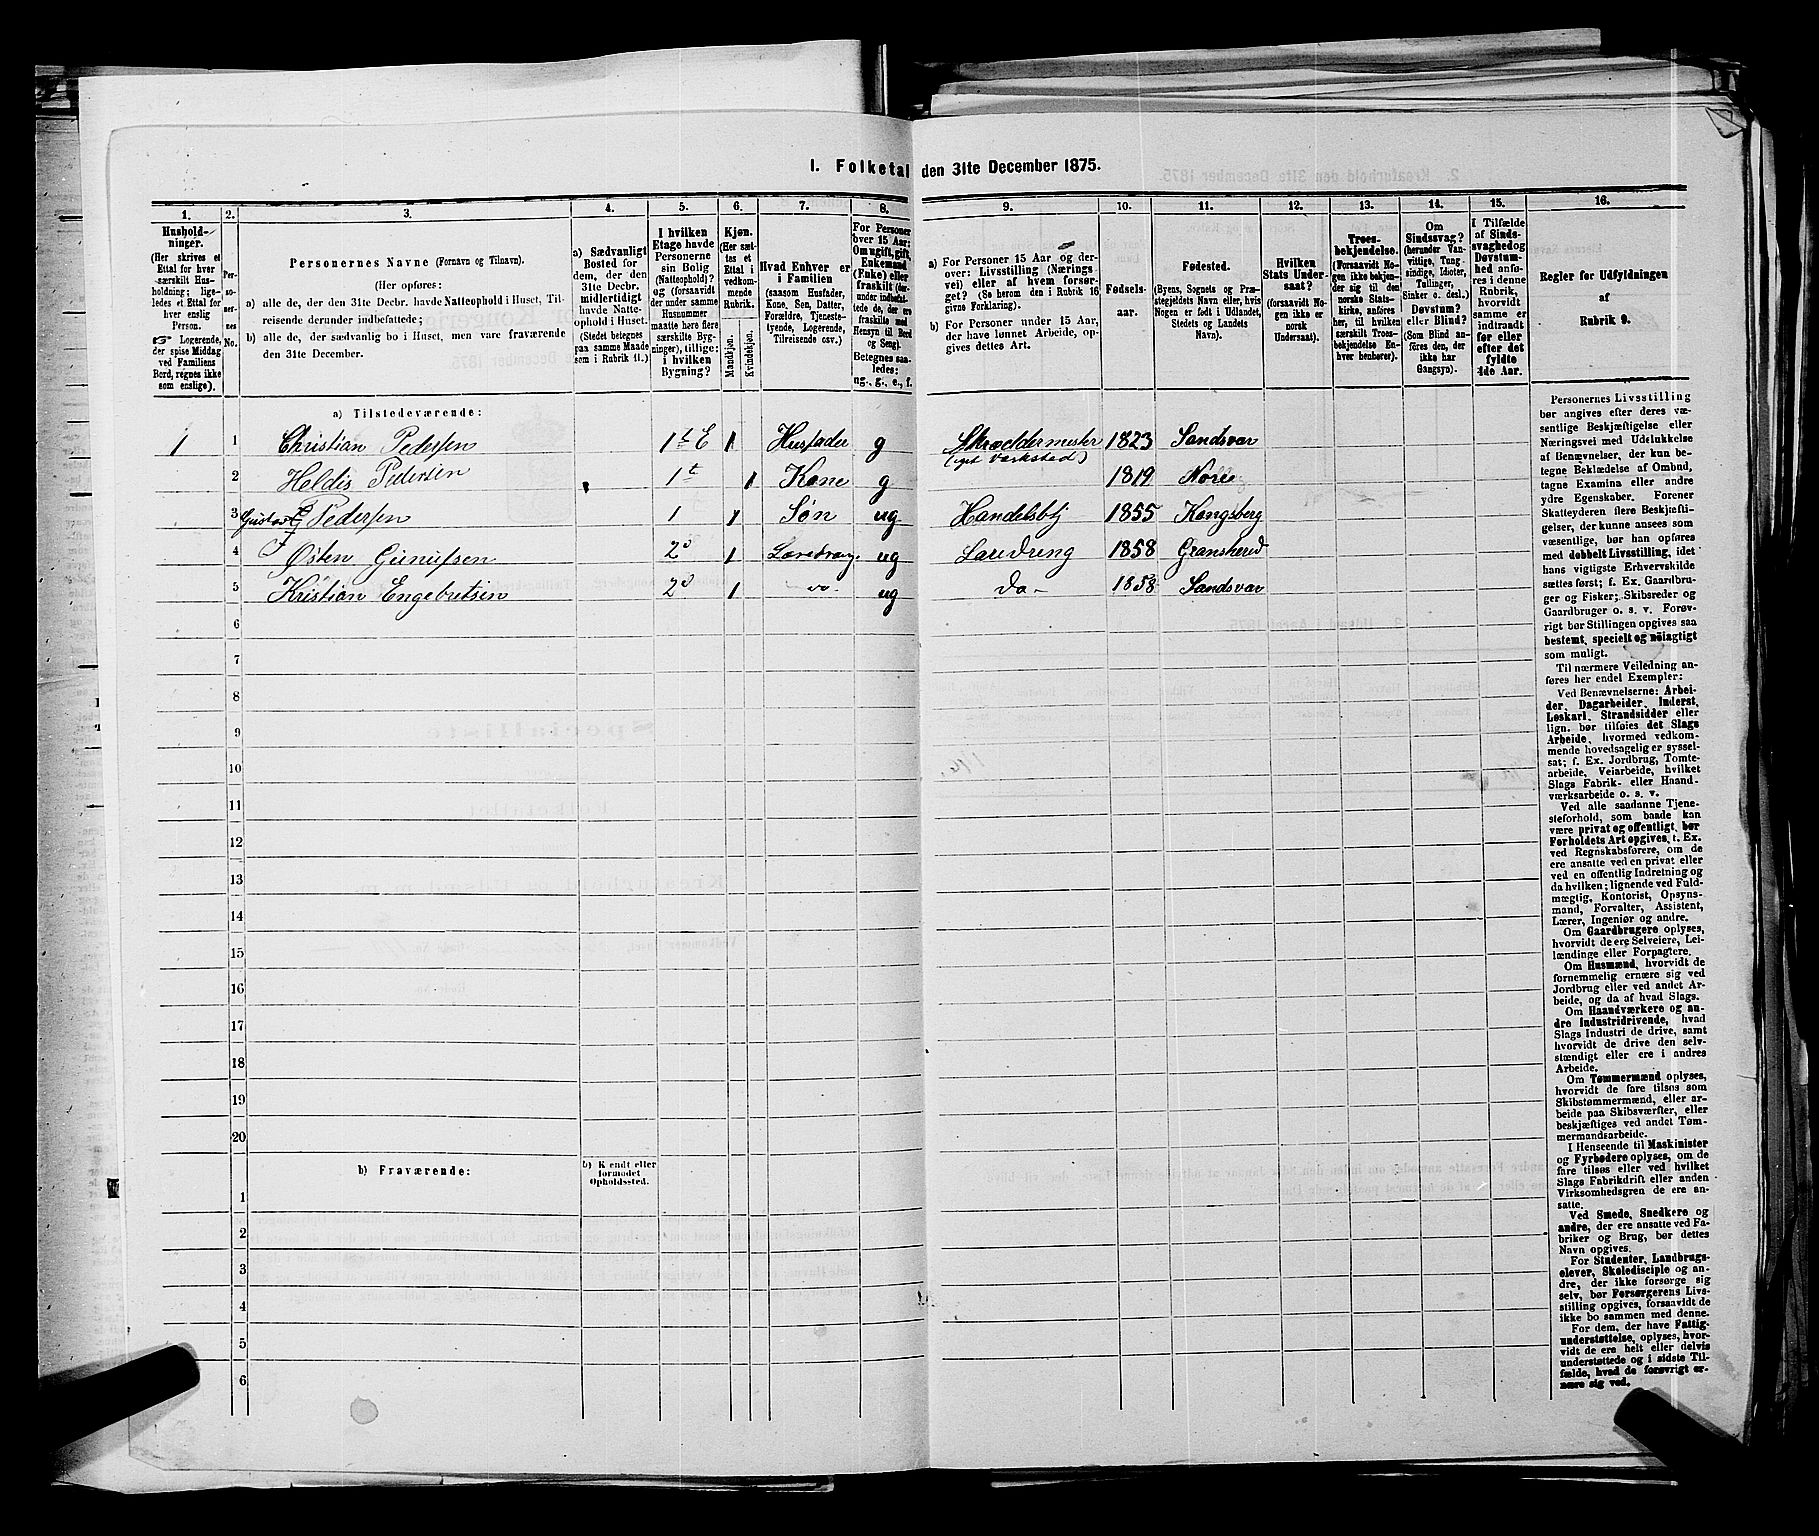 I. Folketal den 31te December 1875.
1. 2. 3. 4. 5. 6. 7. 8. 9. 10. 11. 12. 13. 14. 15. 16.
Hushold-
ninger.
(Her skrives et
Ettal for hver
særskilt Hus-
holdning; lige-
ledes et Ettal for
hver enslig
Person.
☞ Logerende,
der spise Middag
ved Familiens
Bord, regnes ikke
som enslige).
Per-
so-
ner-
nes
No.
Personernes Navne (Fornavn og Tilnavn).
(Her opføres:
a) alle de, der den 31te Decbr. havde Natteophold i Huset, Til-
reisende derunder indbefattede;
b) alle de, der sædvanlig bo i Huset, men vare fraværende
den 31te December.
a) Sædvanligt
Bosted for
dem, der den
31te Decbr.
midlertidigt
havde Natte-
ophold i Huset.
(Stedet betegnes
paa samme Maade
som i Rubrik 11.)
I hvilken
Etage havde
Personerne
sin Bolig
(Natteophold)?
(forsaavidt
der under samme
Husnummer
maatte høre flere
særskilte Byg-
ninger), tillige:
i hvilken
Bygning?
Kjøn.
(Her sæt-
tes et
Ettal i
vedkom-
mende
Rubrik.
Mandkjøn.
Kvindekjøn.
Hvad Enhver er
i Familien
(saasom Husfader,
Kone, Søn, Datter,
Forældre, Tjeneste-
tyende, Logerende,
Tilreisende csv.)
For Personer
over 15 Aar:
Om ugift, gift,
Enkemand
(Enke) eller
fraskilt
Betegnes saa-
ledes:
ug., g., e., f.
a) For Personer 15 Aar og der-
over: Livsstilling (Nærings-
vei) eller af hvem forsør-
get? (Se herom den i Rubrik 16
givne Forklaring).
b) For Personer under 15 Aar,
der have lønnet Arbeide, op-
gives dettes Art.
Fødsels-
aar.
Fødested.
(Byens, Sognets og Præ-
stegjeldets Navn eller, hvis
Nogen er født i Udlandet,
Stedets og Landets
Navn).
Hvilken
Stats Under-
saat?
(forsaavidt No-
gen ikke er
norsk
Undersaat).
Troes-
bekjendelse.
(Forsaavidt No-
gen ikke bekjen-
der sig til den
norske Stats-
kirke, anføres
her, til hvilken
særskilt Troes-
bekjendelse En-
hver benhører).
Om
Sindssvag?
(herunder Van-
vittige, Tung-
sindige, Idioter,
Tullinger,
Sinker o. desl.)
Døvstum?
eller Blind?
(Som Blind an-
føres den, der
ikke har
Gangsyn).
I Tilfælde
af Sinds-
svaghed og
Døvstum-
hed anfø-
res i denne
Rubrik,
hvorvidt
samme er
indtraadt
før eller
efter det
fyldte
4de Aar.
Regler for Udfyldningen
af
Rubrik 9.
a) Tilstedeværende:
1 1 Christian Pedersen 1t E 1 Husfader g Skræddermester 1823 Sandsvar
2 Heldis Pedersen 1t 1 Kone g 1819
3 Gustav Pedersen 1 1 Søn ug Handelsbtj 1855 Kongsberg
4 Østen 2d 1 ug Læredreng 1858 Gransherid
5 Kristian Engebretsen 2d 1 do. ug do- 1858 Sandsvar
6
7
8
9
10
11
12
13
14
15
16
17
18
19
20
b) Fraværende:
b) Kjendt eller
formodet
Opholdssted.
1
2
3
4
5
6
Personernes Livsstilling
bør angives efter deres væ-
sentlige Beskjæftigelse eller
Næringsvei med Udelukkelse
af Benævnelser, der kun be-
tegne Beklædelse af Ombud,
tagne Examina eller andre
ydre Egenskaber. Forener
Skatteyderen flere Beskjæfti-
gelser, der kunne ansees som
væsentlige, bør han opføres
med dobbelt Livsstilling, idet
hans vigtigste Erhvervskilde
sættes først; f. Ex. Gaardbru-
ger og Fisker; Skibsreder og
Gaardbruger o. s. v. Forøv-
rigt bør Stillingen opgives saa
bestemt, specielt og nöiagtigt
som muligt.
Til nærmere Veiledning an-
føres her endel Exempler:
Ved Benævnelserne: Arbei-
der, Dagarbeider, Inderst,
Løskarl, Strandsidder eller
lign. bør tilføies det Slags
Arbeide, hvormed vedkom-
mende hovedsagelig er syssel-
sat; f. Ex. Jordbrug, Tomte-
arbeide, Veiarbeide, hvilket
Slags Fabrik- eller Haand-
værksarbeide o. s. v.
Ved alle saadanne Tjene-
steforhold, som baade kan
være privat og offentligt, bør
Forholdets Art opgives, t. Ex.
ved Regnskabsførere, om de
ere ansatte ved en privat eller
ved en offentlig Indretning og
da hvilken; lignende ved Fuld-
mægtig, Kontorist, Opsyns-
mand, Forvalter, Assistent,
Lærer, Ingeniør og andre.
Om Gaardbrugere oplyses,
hvorvidt de ere Selveiere, Lei-
lændinge eller Forpagtere.
Om Husmænd, hvorvidt de
fornemmelig ernære sig ved
Jordbrug eller ved andet Ar-
beide, og da af hvad Slags.
Om Haandværkere og an-
dre Industridrivende, hvad
Slags Industri de drive, samt
hvorvidt de drive den selv-
stændigt eller ere i andres
Arbeide.
Om Tømmermænd oplyses,
hvorvidt de fare tilsøs som
Skibstømmermænd, eller ar-
beide paa Skibsværfter, eller
beskjæftiges ved andet Tøm-
mermandsarbeide.
I Henseende til Maskinister
og Fyrbødere oplyses, om de
fare tilsøs eller ved hvilket
Slags Fabrikdrift eller anden
Virksomhedsgren de ere an-
satte.
Ved Smede, Snedkere og
andre, der ere ansatte ved Fa-
briker og Brug, bør dettes
Navn opgives.
For Studenter, Landbrugs-
elever, Skoledisciple og an-
dre, der ikke forsørge sig
selv, bør Forsørgerens Livs-
stilling opgives, forsaavidt de
ikke bo sammen med denne.
For dem, der have Fattig-
understøttelse, oplyses, hvor-
vidt de ere helt eller delvis
understøttede og i sidste Til-
fælde, hvad de forøvrigt er-
nære sig ved.